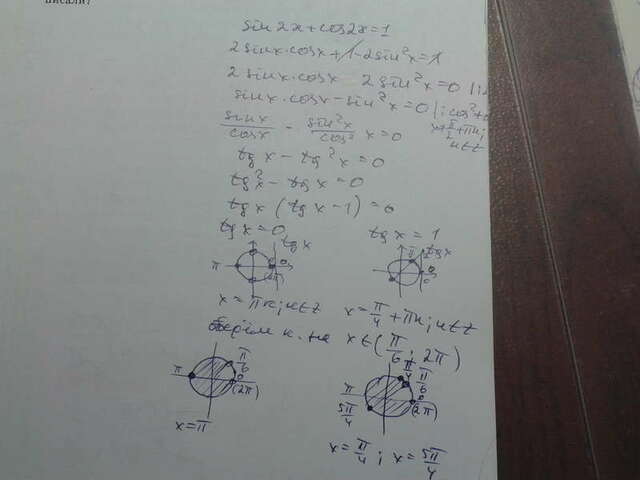 писали?
sin2x+cos2x=1
2sinx·cosx+1-2sin²x=1
2sinx·cosx-2sin²x=0 |:2
sinx·cosx-sin²x=0 |:cos²≠0
sinx/cosx - sin²x/cos² x=0 x≠π/2+πn; n∈Z
tgx-tg²x=0
tg²x-tgx=0
tgx(tgx-1)=0
tgx=0 tgx=1
tgx π 0 (2π)
π/4 tgx 0
x=πn; n∈Z x=π/4+πn; n∈Z
к. на x∈(π/6; 2π)
π π/6 0 (2π)
π 5π/4 π/4 π/6 0 (2π)
x=π
x=π/4; x=5π/4